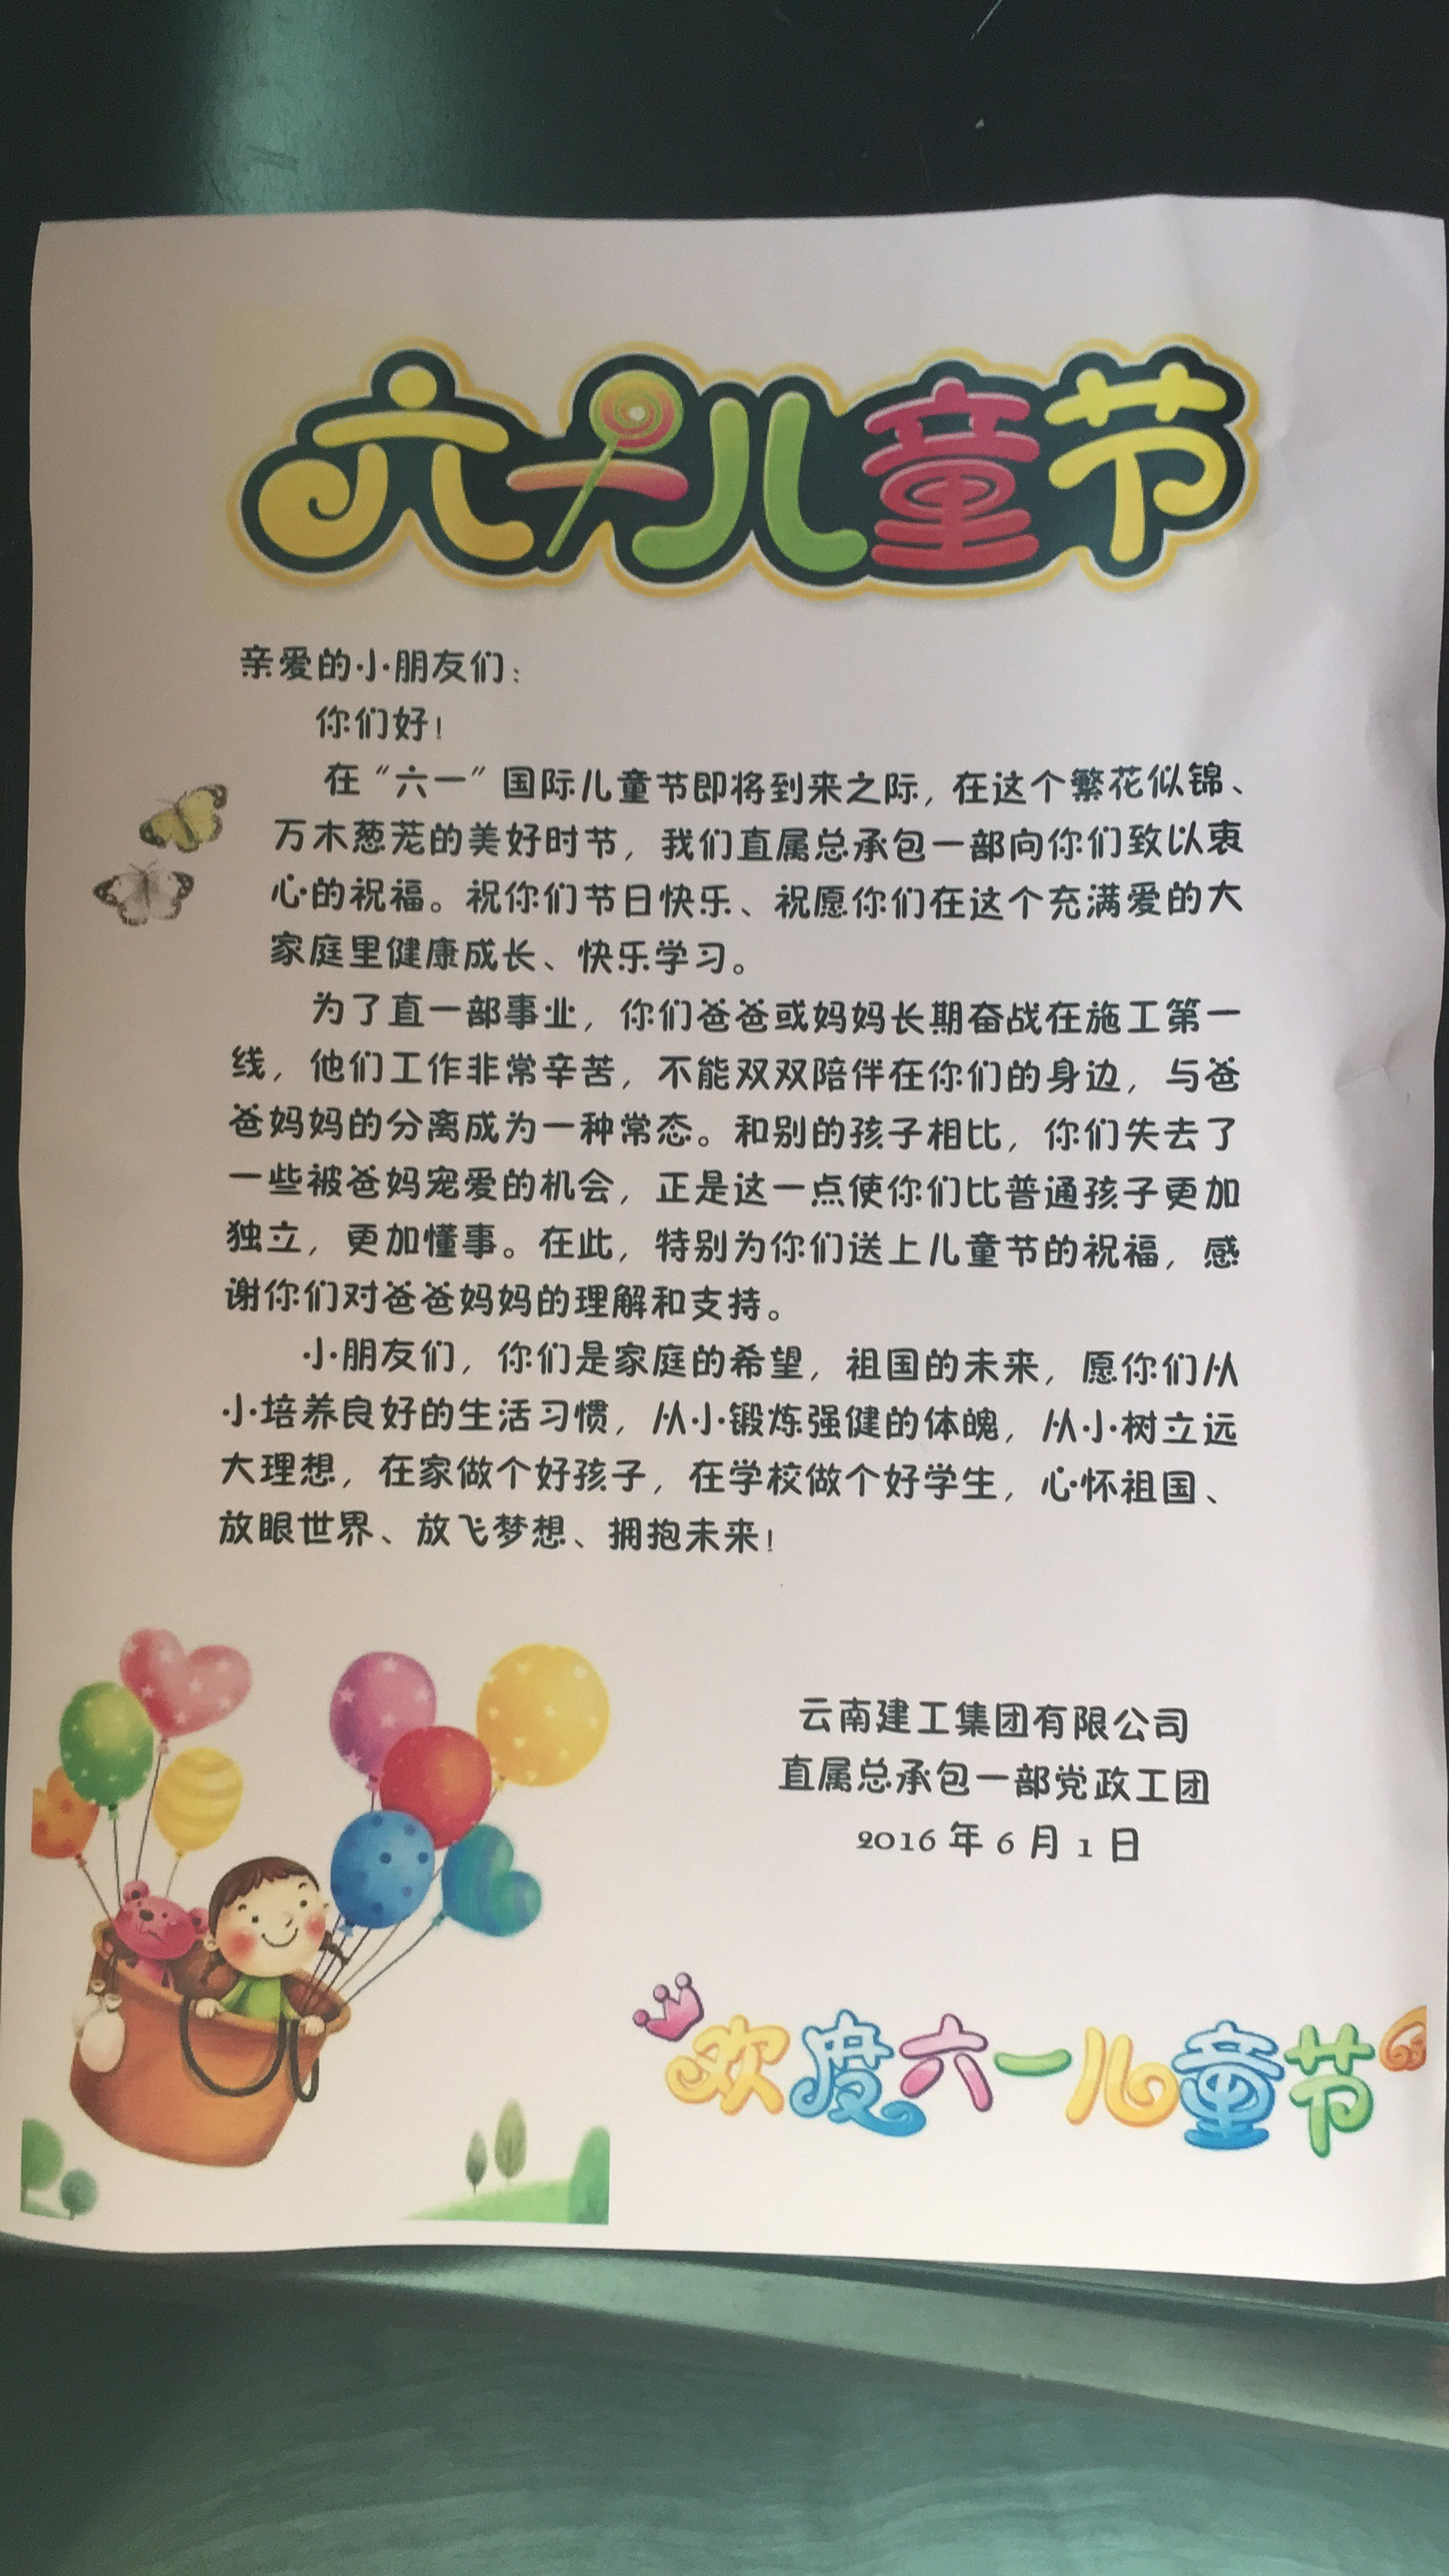 六一儿童节
亲爱的小朋友们：
你们好！
在“六一”国际儿童节即将到来之际，在这个繁花似锦、
万木葱茏的美好时节，我们直属总承包一部向你们致以衷
心的祝福。祝你们节日快乐、祝愿你们在这个充满爱的大
家庭里健康成长、快乐学习。
为了直一部事业，你们爸爸或妈妈长期奋战在施工第一
线，他们工作非常辛苦，不能双双陪伴在你们的身边，与爸
爸妈妈的分离成为一种常态。和别的孩子相比，你们失去了
一些被爸妈宠爱的机会，正是这一点使你们比普通孩子更加
独立，更加懂事。在此，特别为你们送上儿童节的祝福，感
谢你们对爸爸妈妈的理解和支持。
小朋友们，你们是家庭的希望，祖国的未来，愿你们从
小培养良好的生活习惯，从小锻炼强健的体魄，从小树立远
大理想，在家做个好孩子，在学校做个好学生，心怀祖国、
放眼世界、放飞梦想、拥抱未来！
云南建工集团有限公司
直属总承包一部党政工团
2016年6月1日
欢度六一儿童节